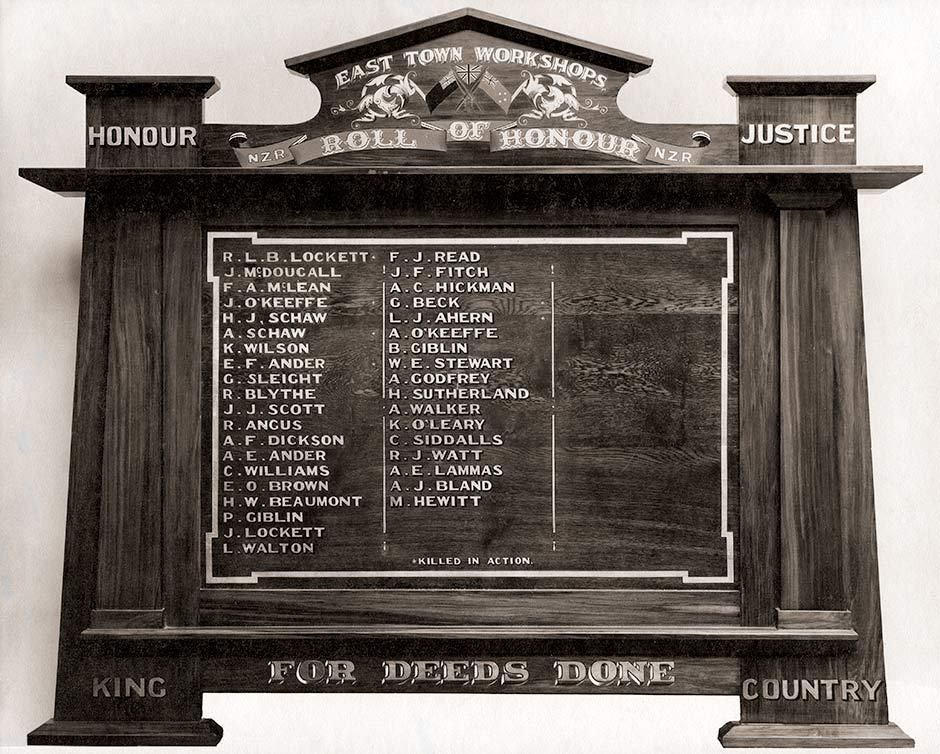 EAST TOWN WORKSHOPS
HONOUR
JUSTICE
NZR ROLL OF HONOUR NZR
R.L.B.LOCKETT
J.McDOUGALL
F.A.McLEAN
J.O'KEEFFE
H.J.SCHAW
A.SCHAW
K.WILSON
E.F.ANDER
G.SLEIGHT
R.BLYTHE
J.J.SCOTT
R.ANGUS
A.F.DICKSON
A.E.ANDER
C.WILLIAMS
E.O.BROWN
H.W.BEAUMONT
P.GIBLIN
J.LOCKETT
L.WALTON
F.J.READ
J.F.FITCH
A.C.HICKMAN
G.BECK
L.J.AHERN
A.O'KEEFFE
B.GIBLIN
W.E.STEWART
A.GODFREY
H.SUTHERLAND
A.WALKER
K.O'LEARY
C.SIDDALLS
R.J.WATT
A.E.LAMMAS
A.J.BLAND
M.HEWITT
*KILLED IN ACTION.
FOR DEEDS DONE
KING
COUNTRY